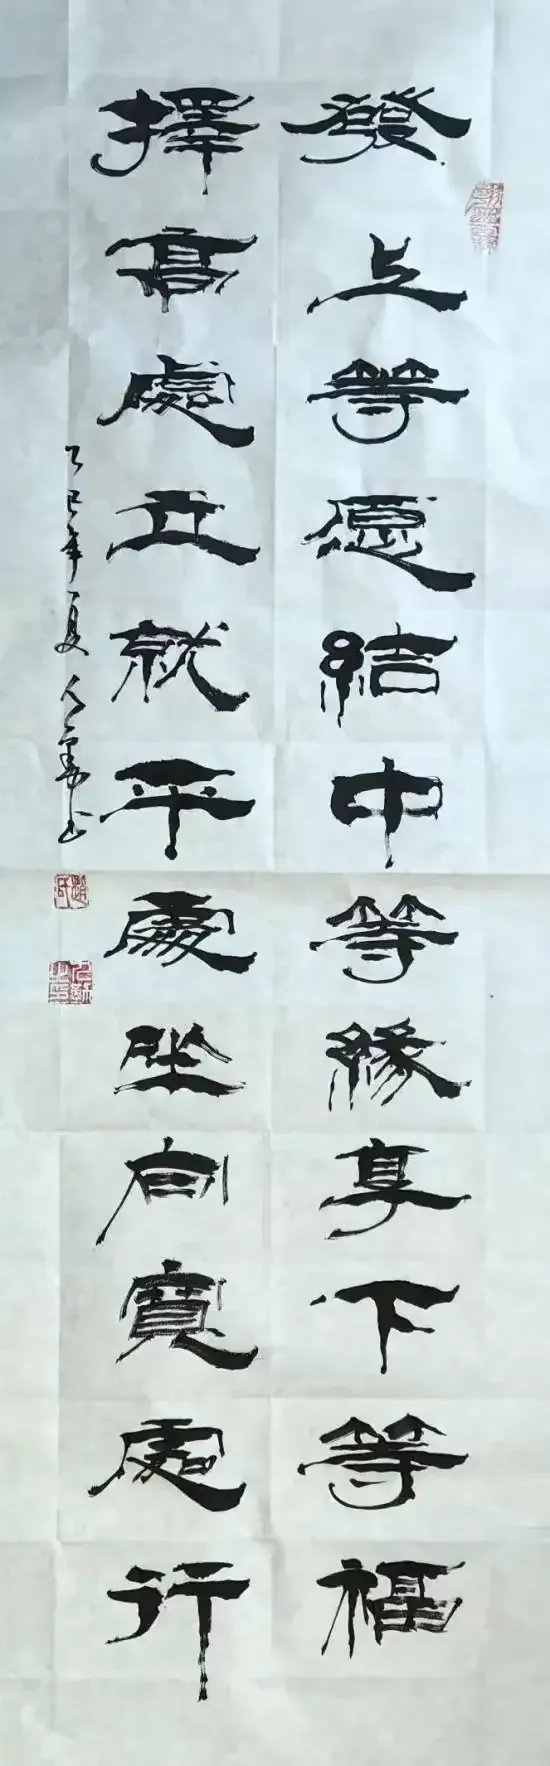 發上等愿結中等緣享下等福
擇高處立就平處坐向寬處行
乙巳年夏